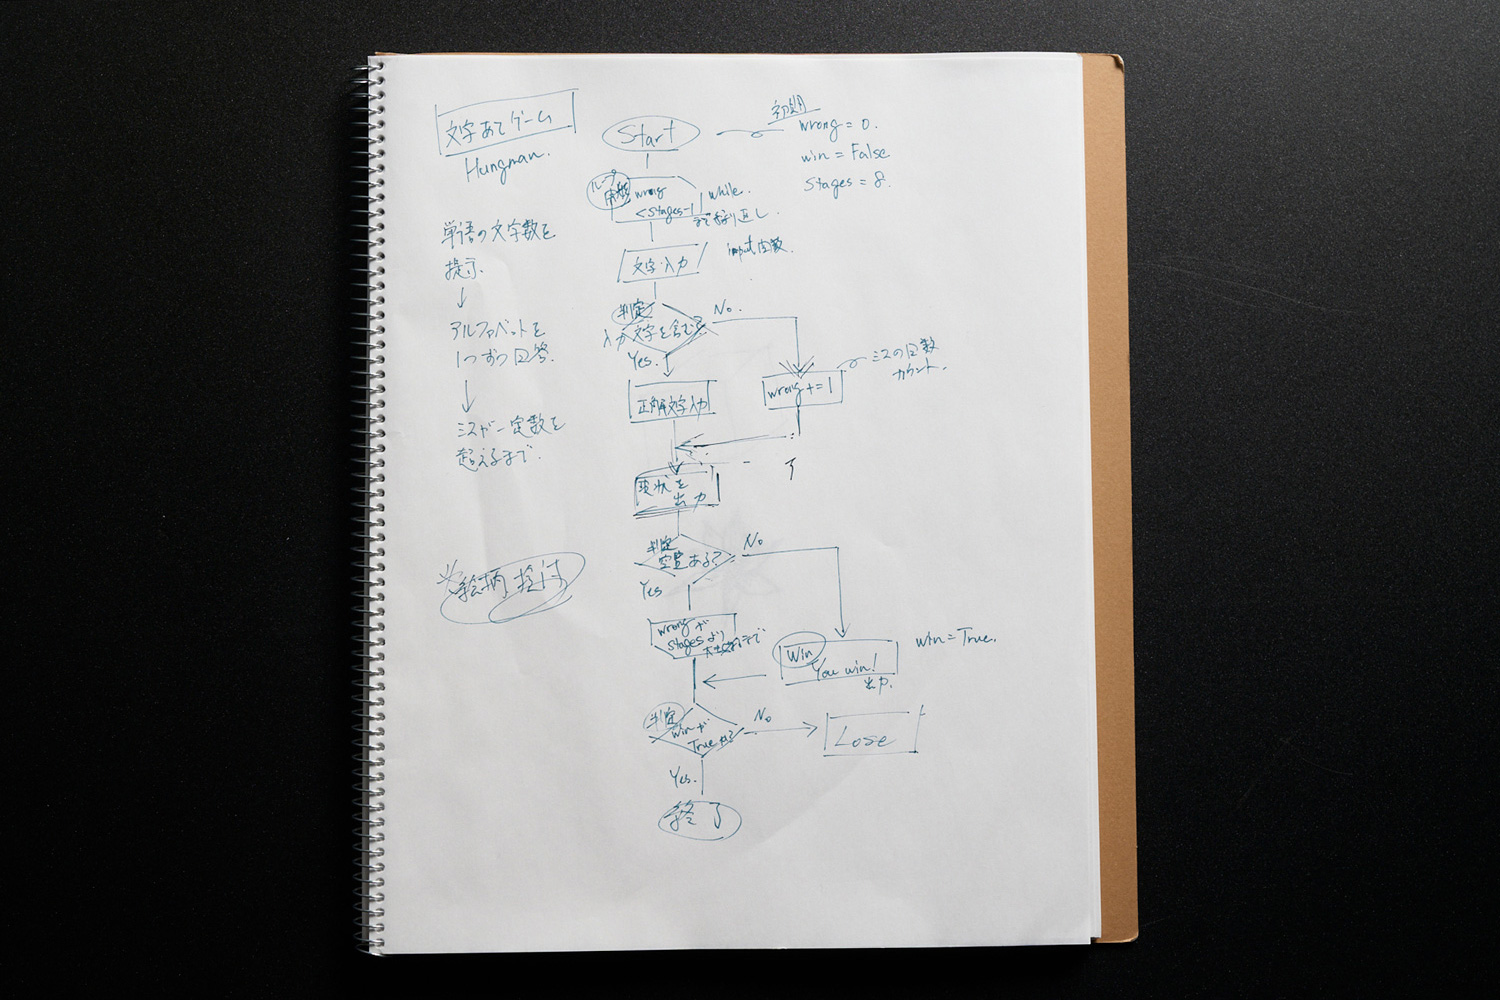 文字あてゲーム
Hungman.
単語の文字数を
提示.
↓
アルファベットを
1つずつ回答.
↓
ミスが一定数を
超えるまで.
絵柄
Start
初期
wrong = 0.
win = False
Stages = 8.
ループ
wrong
< stages-1
while.
まで繰り返し
文字入力
input関数
判定
入力文字を含む?
No.
Yes.
正解文字入力
wrong += 1
ミスの回数
カウント.
現状を
出力
判定
空置ある?
No
Yes
wrongが
stagesより
まで
Win
You win!
出力.
win = True.
判定
winが
True
No
Lose
Yes.
終了